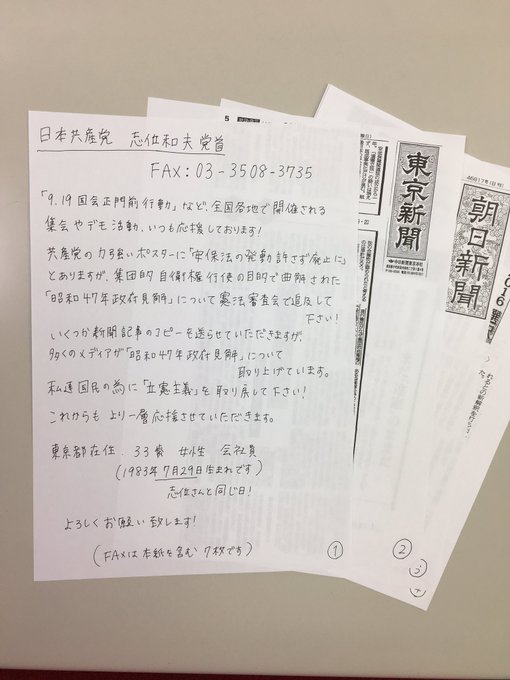 日本共産党 志位和夫党首
FAX:03-3508-3735
「9.19国会正門前行動」など、全国各地で開催される
集会やデモ活動、いつも応援しております!
共産党の力強いポスターに「安保法の発動許さず廃止に」
とありますが、集団的自衛権行使の目的で曲解された
「昭和47年政府見解」について憲法審査会で追及して
下さい!
いくつか新聞記事のコピーを送らせていただきますが、
多くのメディアが「昭和47年政府見解」について
取り上げています。
私達国民の為に「立憲主義」を取り戻して下さい!
これからもより一層応援させていただきます。
東京都在住. 33歳 女性 会社員
(1983年7月29日生まれです)
志位さんと同じ日!
よろしくお願い致します!
(FAXは本紙を含む7枚です)
①
東京新聞
②
朝日新聞
2016